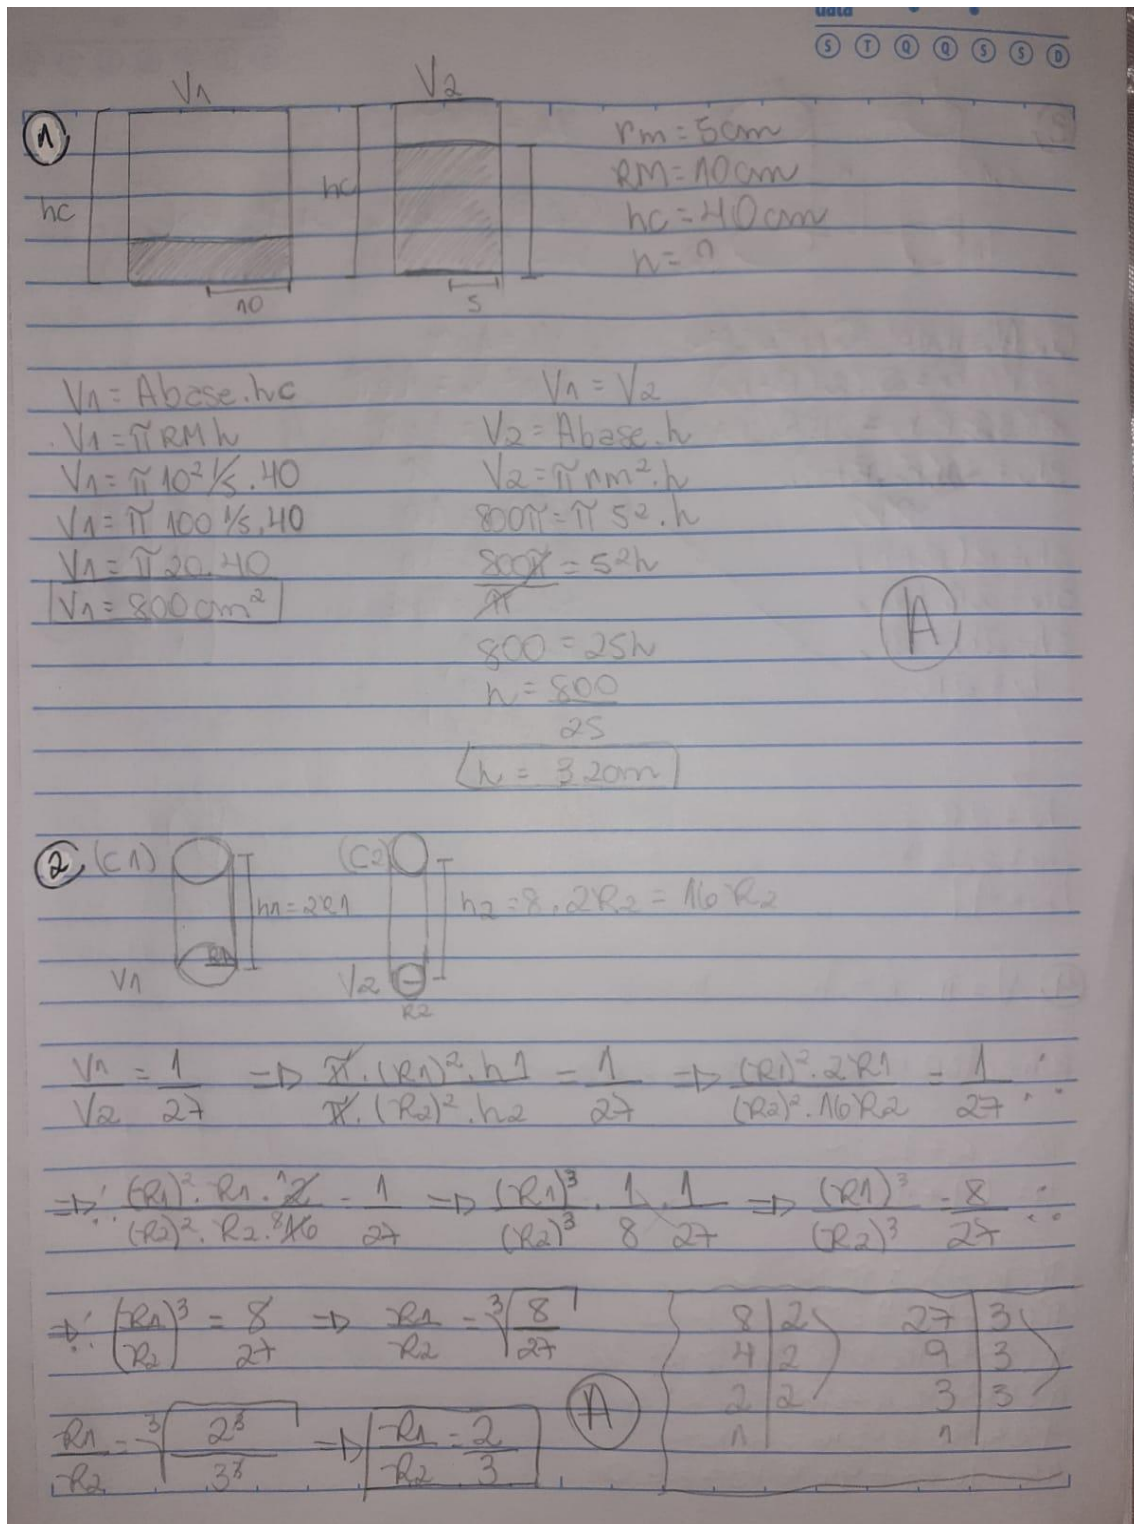 data
S T Q Q S S D
V1 V2
1
hc hc
10 5
rm = 5cm
RM = 10cm
hc = 40cm
h = ?
V1 = Abase.hc
V1 = π RM h
V1 = π 10² 1/5 . 40
V1 = π 100 1/5 . 40
V1 = π 20.40
V1 = 800cm²
V1 = V2
V2 = Abase.h
V2 = π rm².h
800π = π 5².h
800π/π = 5²h
800 = 25h
h = 800/25
h = 32cm
A
2 (C1) (C2)
h1 = 2R1 h2 = 8.2R2 = 16R2
R1
V1 V2
R2
V1/V2 = 1/27 => π.(R1)².h1/π.(R2)².h2 = 1/27 => (R1)².2R1/(R2)².16R2 = 1/27 ∴
=> ∴ (R1)².R1.2 1/(R2)².R2.16 8 = 1/27 => (R1)³/(R2)³ . 1/8 . 1/27 => (R1)³/(R2)³ = 8/27 ∴
=> ∴ (R1/R2)³ = 8/27 => R1/R2 = ³√8/27
R1/R2 = ³√2³/3³ => R1/R2 = 2/3
A
8 | 2 27 | 3
4 | 2 9 | 3
2 | 2 3 | 3
1 1